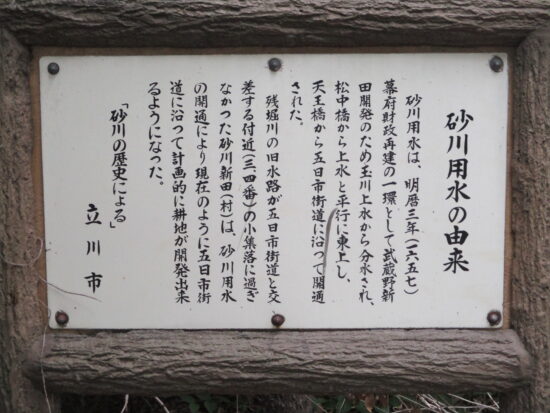 砂川用水の由来
砂川用水は、明暦三年(一六五七)
幕府財政再建の一環として武蔵野新
田開発のため玉川上水から分水され、
松中橋から上水と平行に東上し、
天王橋から五日市街道に沿つて開通
された。
残堀川の旧水路が五日市街道と交
差する付近(三、四番)の小集落に過ぎ
なかつた砂川新田(村)は、砂川用水
の開通により現在のように五日市街
道に沿つて計画的に耕地が開発出来
るようになった。
「砂川の歴史による」
立川市